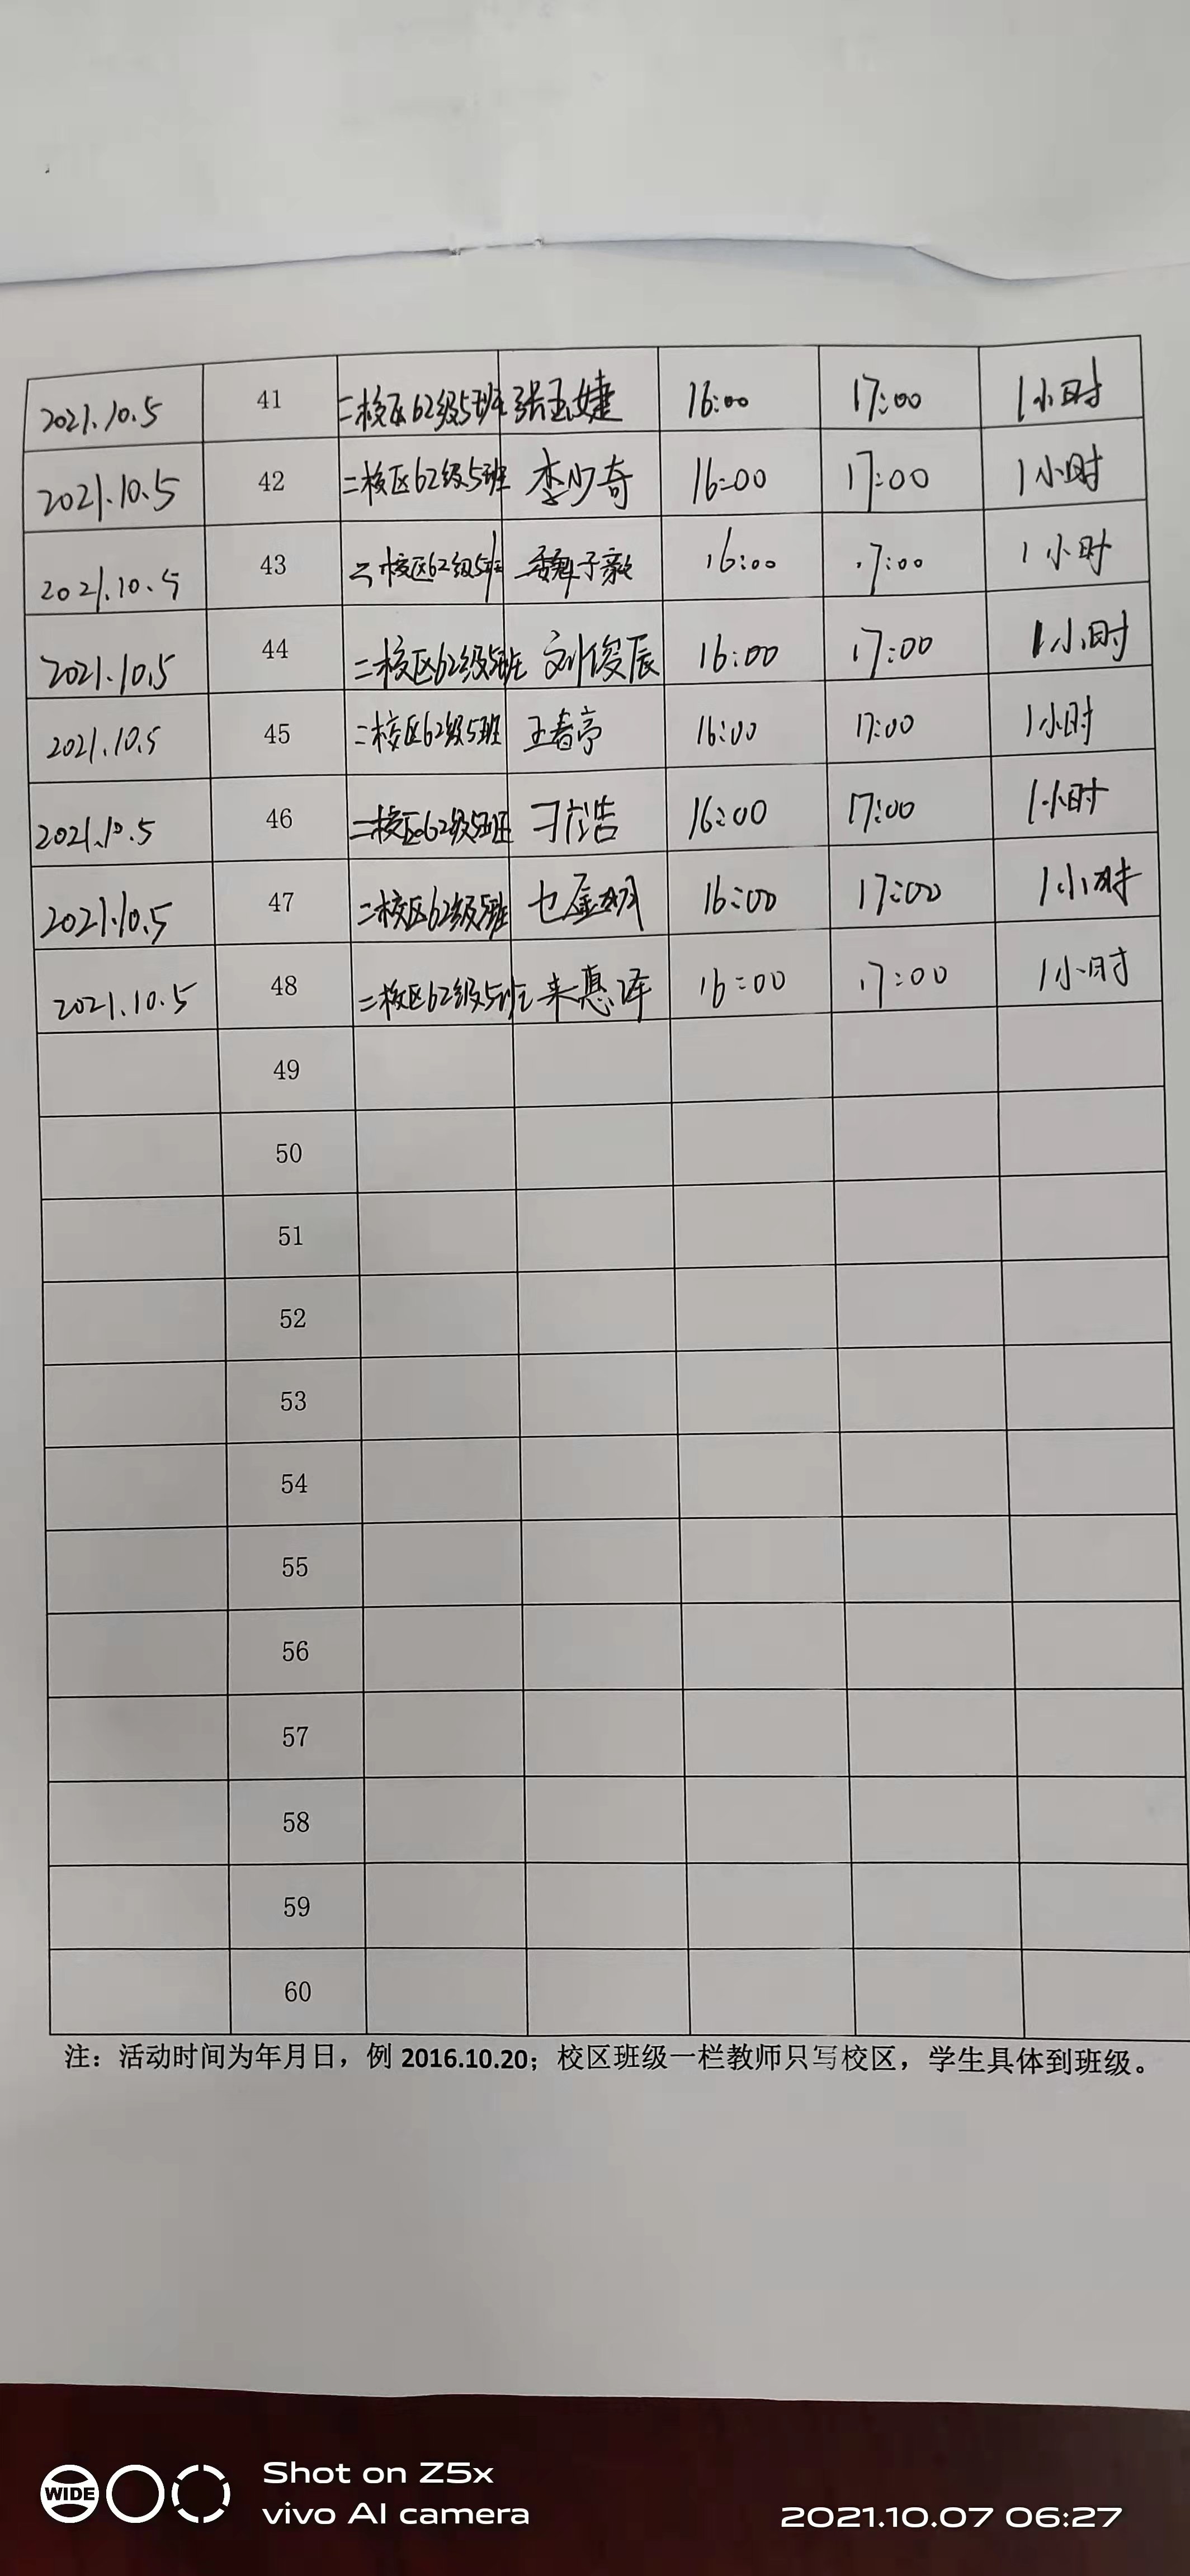 2021.10.5 41 二校区62级5班 张玉婕 16:00 17:00 1小时
2021.10.5 42 二校区62级5班 李少奇 16:00 17:00 1小时
2021.10.5 43 二校区62级5班 魏子毅 16:00 17:00 1小时
2021.10.5 44 二校区62级5班 刘俊辰 16:00 17:00 1小时
2021.10.5 45 二校区62级5班 王春亭 16:00 17:00 1小时
2021.10.5 46 二校区62级5班 浩 16:00 17:00 1小时
2021.10.5 47 二校区62级5班 16:00 17:00 1小时
2021.10.5 48 二校区62级5班 来惠泽 16:00 17:00 1小时
49
50
51
52
53
54
55
56
57
58
59
60
注：活动时间为年月日，例 2016.10.20；校区班级一栏教师只写校区，学生具体到班级。
WIDE
Shot on Z5x
vivo AI camera
2021.10.07 06:27